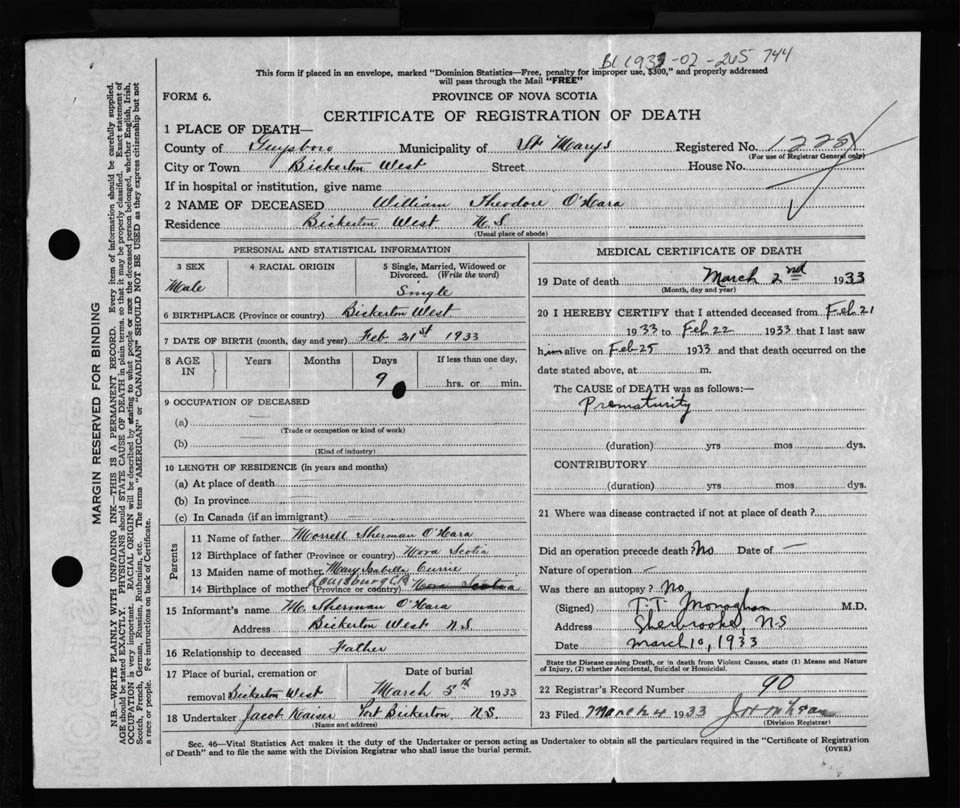 BC 1933-02-205 744
This form if placed in an envelope, marked "Dominion Statistics—Free, penalty for improper use, $300," and properly addressed
will pass through the Mail "FREE"
FORM 6. PROVINCE OF NOVA SCOTIA
CERTIFICATE OF REGISTRATION OF DEATH
1 PLACE OF DEATH—
County of Guysboro Municipality of St Marys Registered No. 1228
(For use of Registrar General only)
City or Town Bickerton West Street House No.
If in hospital or institution, give name
2 NAME OF DECEASED William Theodore O'Hara
Residence Bickerton West N.S.
(Usual place of abode)
PERSONAL AND STATISTICAL INFORMATION
3 SEX 4 RACIAL ORIGIN 5 Single, Married, Widowed or
Divorced. (Write the word)
Male Single
6 BIRTHPLACE (Province or country) Bickerton West
7 DATE OF BIRTH (month, day and year) Feb 21st 1933
8 AGE IN Years Months Days If less than one day,
9 hrs. or min.
9 OCCUPATION OF DECEASED
(a) —
(Trade or occupation or kind of work)
(b) —
(Kind of industry)
10 LENGTH OF RESIDENCE (in years and months)
(a) At place of death —
(b) In province —
(c) In Canada (if an immigrant) —
Parents
11 Name of father Morrell Sherman O'Hara
12 Birthplace of father (Province or country) Nova Scotia
13 Maiden name of mother Mary Isabella Currie
14 Birthplace of mother (Province or country) Louisburg C.B. Nova Scotia
15 Informant's name M. Sherman O'Hara
Address Bickerton West N.S.
16 Relationship to deceased Father
17 Place of burial, cremation or Date of burial
removal Bickerton West March 5th 1933
18 Undertaker Jacob Kaiser Port Bickerton, N.S.
(Name and address)
MEDICAL CERTIFICATE OF DEATH
19 Date of death March 2nd 1933
(Month, day and year)
20 I HEREBY CERTIFY that I attended deceased from Feb 21
1933 to Feb 22 1933 that I last saw
him alive on Feb 25 1933 and that death occurred on the
date stated above, at m.
The CAUSE of DEATH was as follows:—
Prematurity
(duration) yrs mos dys.
CONTRIBUTORY
(duration) yrs mos dys.
21 Where was disease contracted if not at place of death?
Did an operation precede death? No Date of —
Nature of operation —
Was there an autopsy? No
(Signed) T.T. Monaghan M.D.
Address Sherbrooke, N.S
Date March 10, 1933
State the Disease causing Death, or in death from Violent Causes, state (1) Means and Nature
of Injury, (2) whether Accidental, Suicidal or Homicidal.
22 Registrar's Record Number 90
23 Filed March 4 1933
(Division Registrar)
Sec. 46—Vital Statistics Act makes it the duty of the Undertaker or person acting as Undertaker to obtain all the particulars required in the "Certificate of Registration
of Death" and to file the same with the Division Registrar who shall issue the burial permit. (OVER)
MARGIN RESERVED FOR BINDING
N.B.—WRITE PLAINLY WITH UNFADING INK—THIS IS A PERMANENT RECORD. Every item of information should be carefully supplied.
AGE should be stated EXACTLY. PHYSICIANS should STATE CAUSE OF DEATH in plain terms, so that it may be properly classified. Exact statement of
OCCUPATION is very important. RACIAL ORIGIN will be described by stating to what people or race the deceased person belonged, whether English, Irish,
Scotch, French, German, Russian, Ruthenian, etc. The terms "AMERICAN" or "CANADIAN" SHOULD NOT BE USED as they express citizenship but not
a race or people. Fee instructions on back of Certificate.